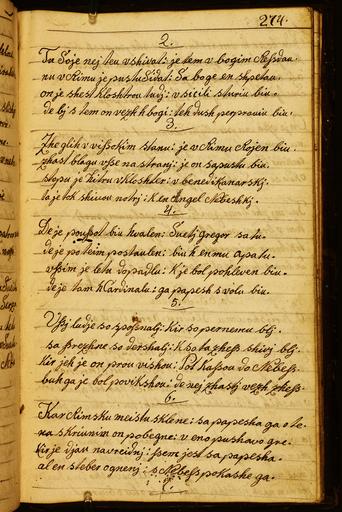 274.
2.
Ta Soje nej teu vshivat: je tem v bogim
nu v Rimu je pustu Sidat: Sa boge en shpetau.
on je shest kloshtrou tudj: v sicili sturiu biu.
de bj s tem on vezh k bogi: teh dush perprauiu biu.
3.
Zhe glih v vissokim stanu: je v Rimu Rojen biu.
zhast blagu vse na stranj: je on sapustu biu.
stopu je hitru v kloshter: v benedikanarskj.
ta je toh shivou notrj: k en Angel Nebeshkj.
4.
De je poupot biu hvalen: Suetj gregor sa tu.
de je po tem postaulen: biu k enmu apatu.
vpim je letu dopadlu: K je bol pohleven biu.
de je tam h Cardinalu: ga papesh svolu biu.
5.
Vssj ludje so sposnalj: kir so per nemu blj.
sa prezhne so dershalj: k so ta zhess shivj blj.
kir jek je on prou viskou: Pot kassou do Nebess.
buh ga je bol povikshou: de nej zhassy vezh zhess.
6.
Kar Rimsku meistu sklene: sa papesha ga o te.
na skriunim on pobegne: v eno pushavo gre.
kir je djau navreidnj: ssem jest sa papesha.
al en steber ognenj: s Nebess pokashe ga.
7.